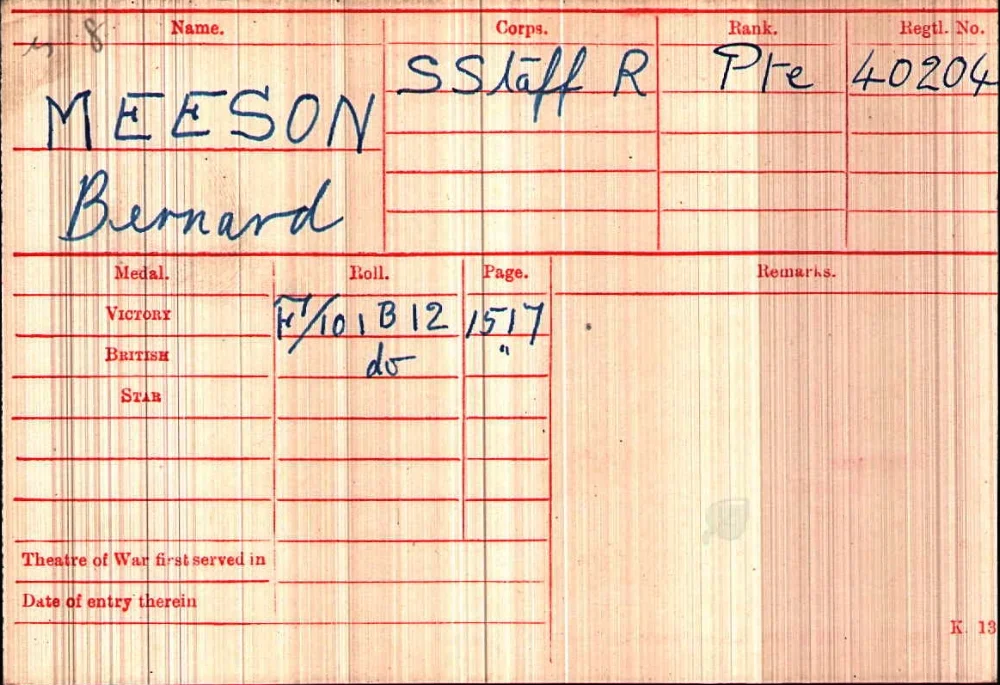 8
Name. Corps. Rank. Regtl. No.
MEESON S Staff R Pte 40204
Bernard
Medal. Roll. Page. Remarks.
VICTORY F/101 B 12 1517
BRITISH do "
STAR
Theatre of War first served in
Date of entry therein
K. 13